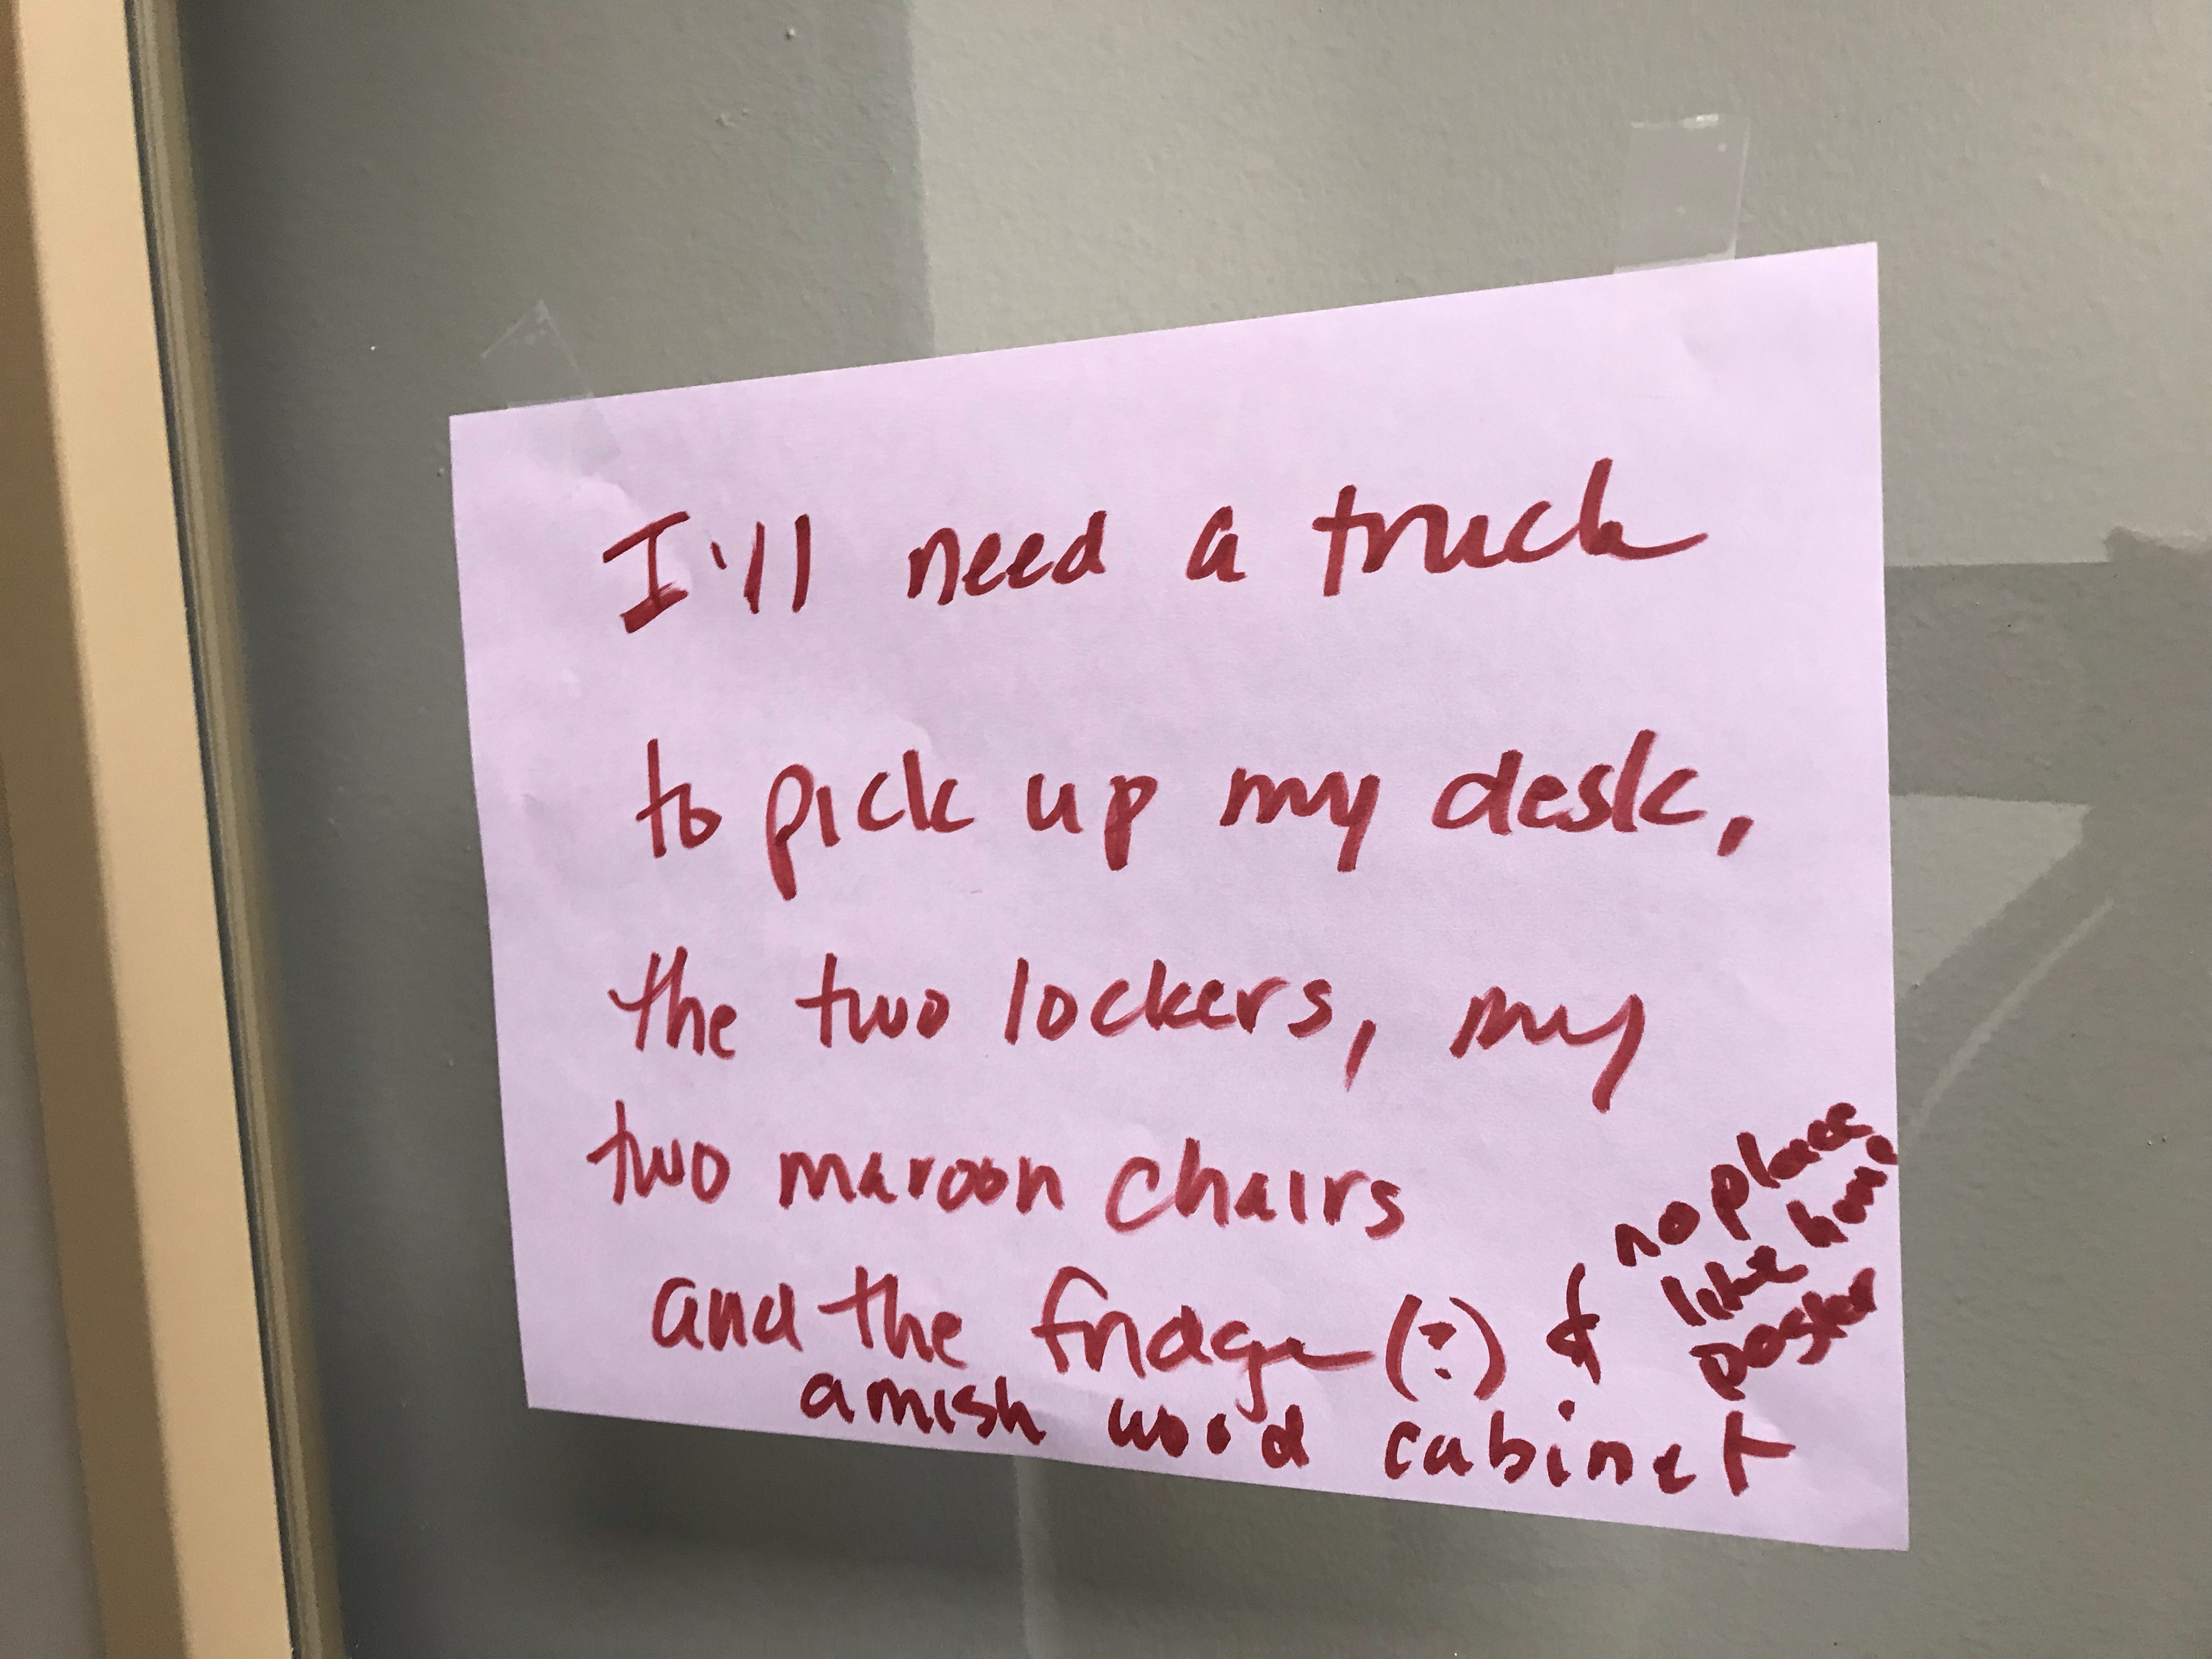 I'll need a truck
to pick up my desk,
the two lockers, my
two maroon chairs
and the fridge (?) &
no place
like home
poster
amish wood cabinet